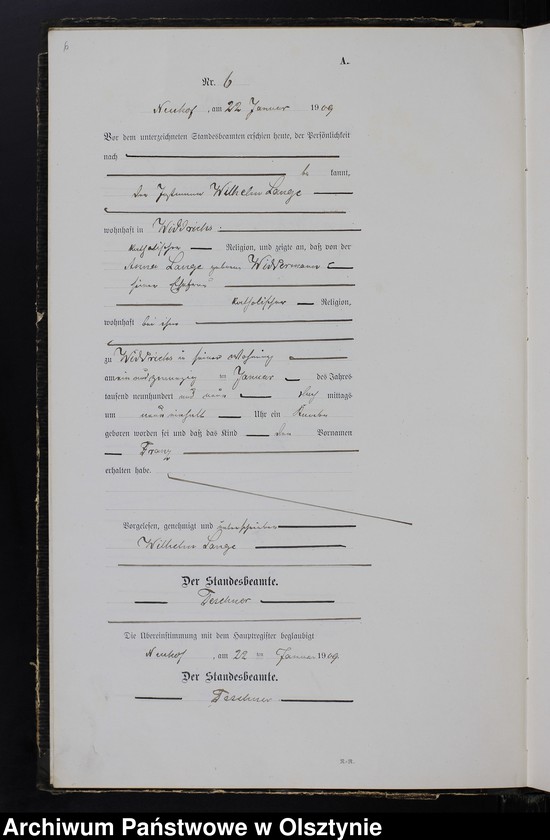 6
A.
Nr. 6
Neuhof, am 22 Januar 1909
Vor dem unterzeichneten Standesbeamten erschien heute, der Persönlichkeit
nach
be kannt,
der Wilhelm Lange
wohnhaft in Widdrichs
katholischer Religion, und zeigte an, daß von der
Anna Lange geborene Widdermann
seiner Ehefrau
katholischer Religion,
wohnhaft bei ihm
zu Widdrichs in seiner Wohnung
am einundzwanzig ten Januar des Jahres
tausend neunhundert und neun Nach mittags
um neuneinhalb Uhr ein Knabe
geboren worden sei und daß das Kind den Vornamen
Franz
erhalten habe.
Vorgelesen, genehmigt und unterschrieben
Wilhelm Lange
Der Standesbeamte.
Teschner
Die Übereinstimmung mit dem Hauptregister beglaubigt
Neuhof, am 22 ten Januar 1909
Der Standesbeamte.
Teschner
Archiwum Państwowe w Olsztynie